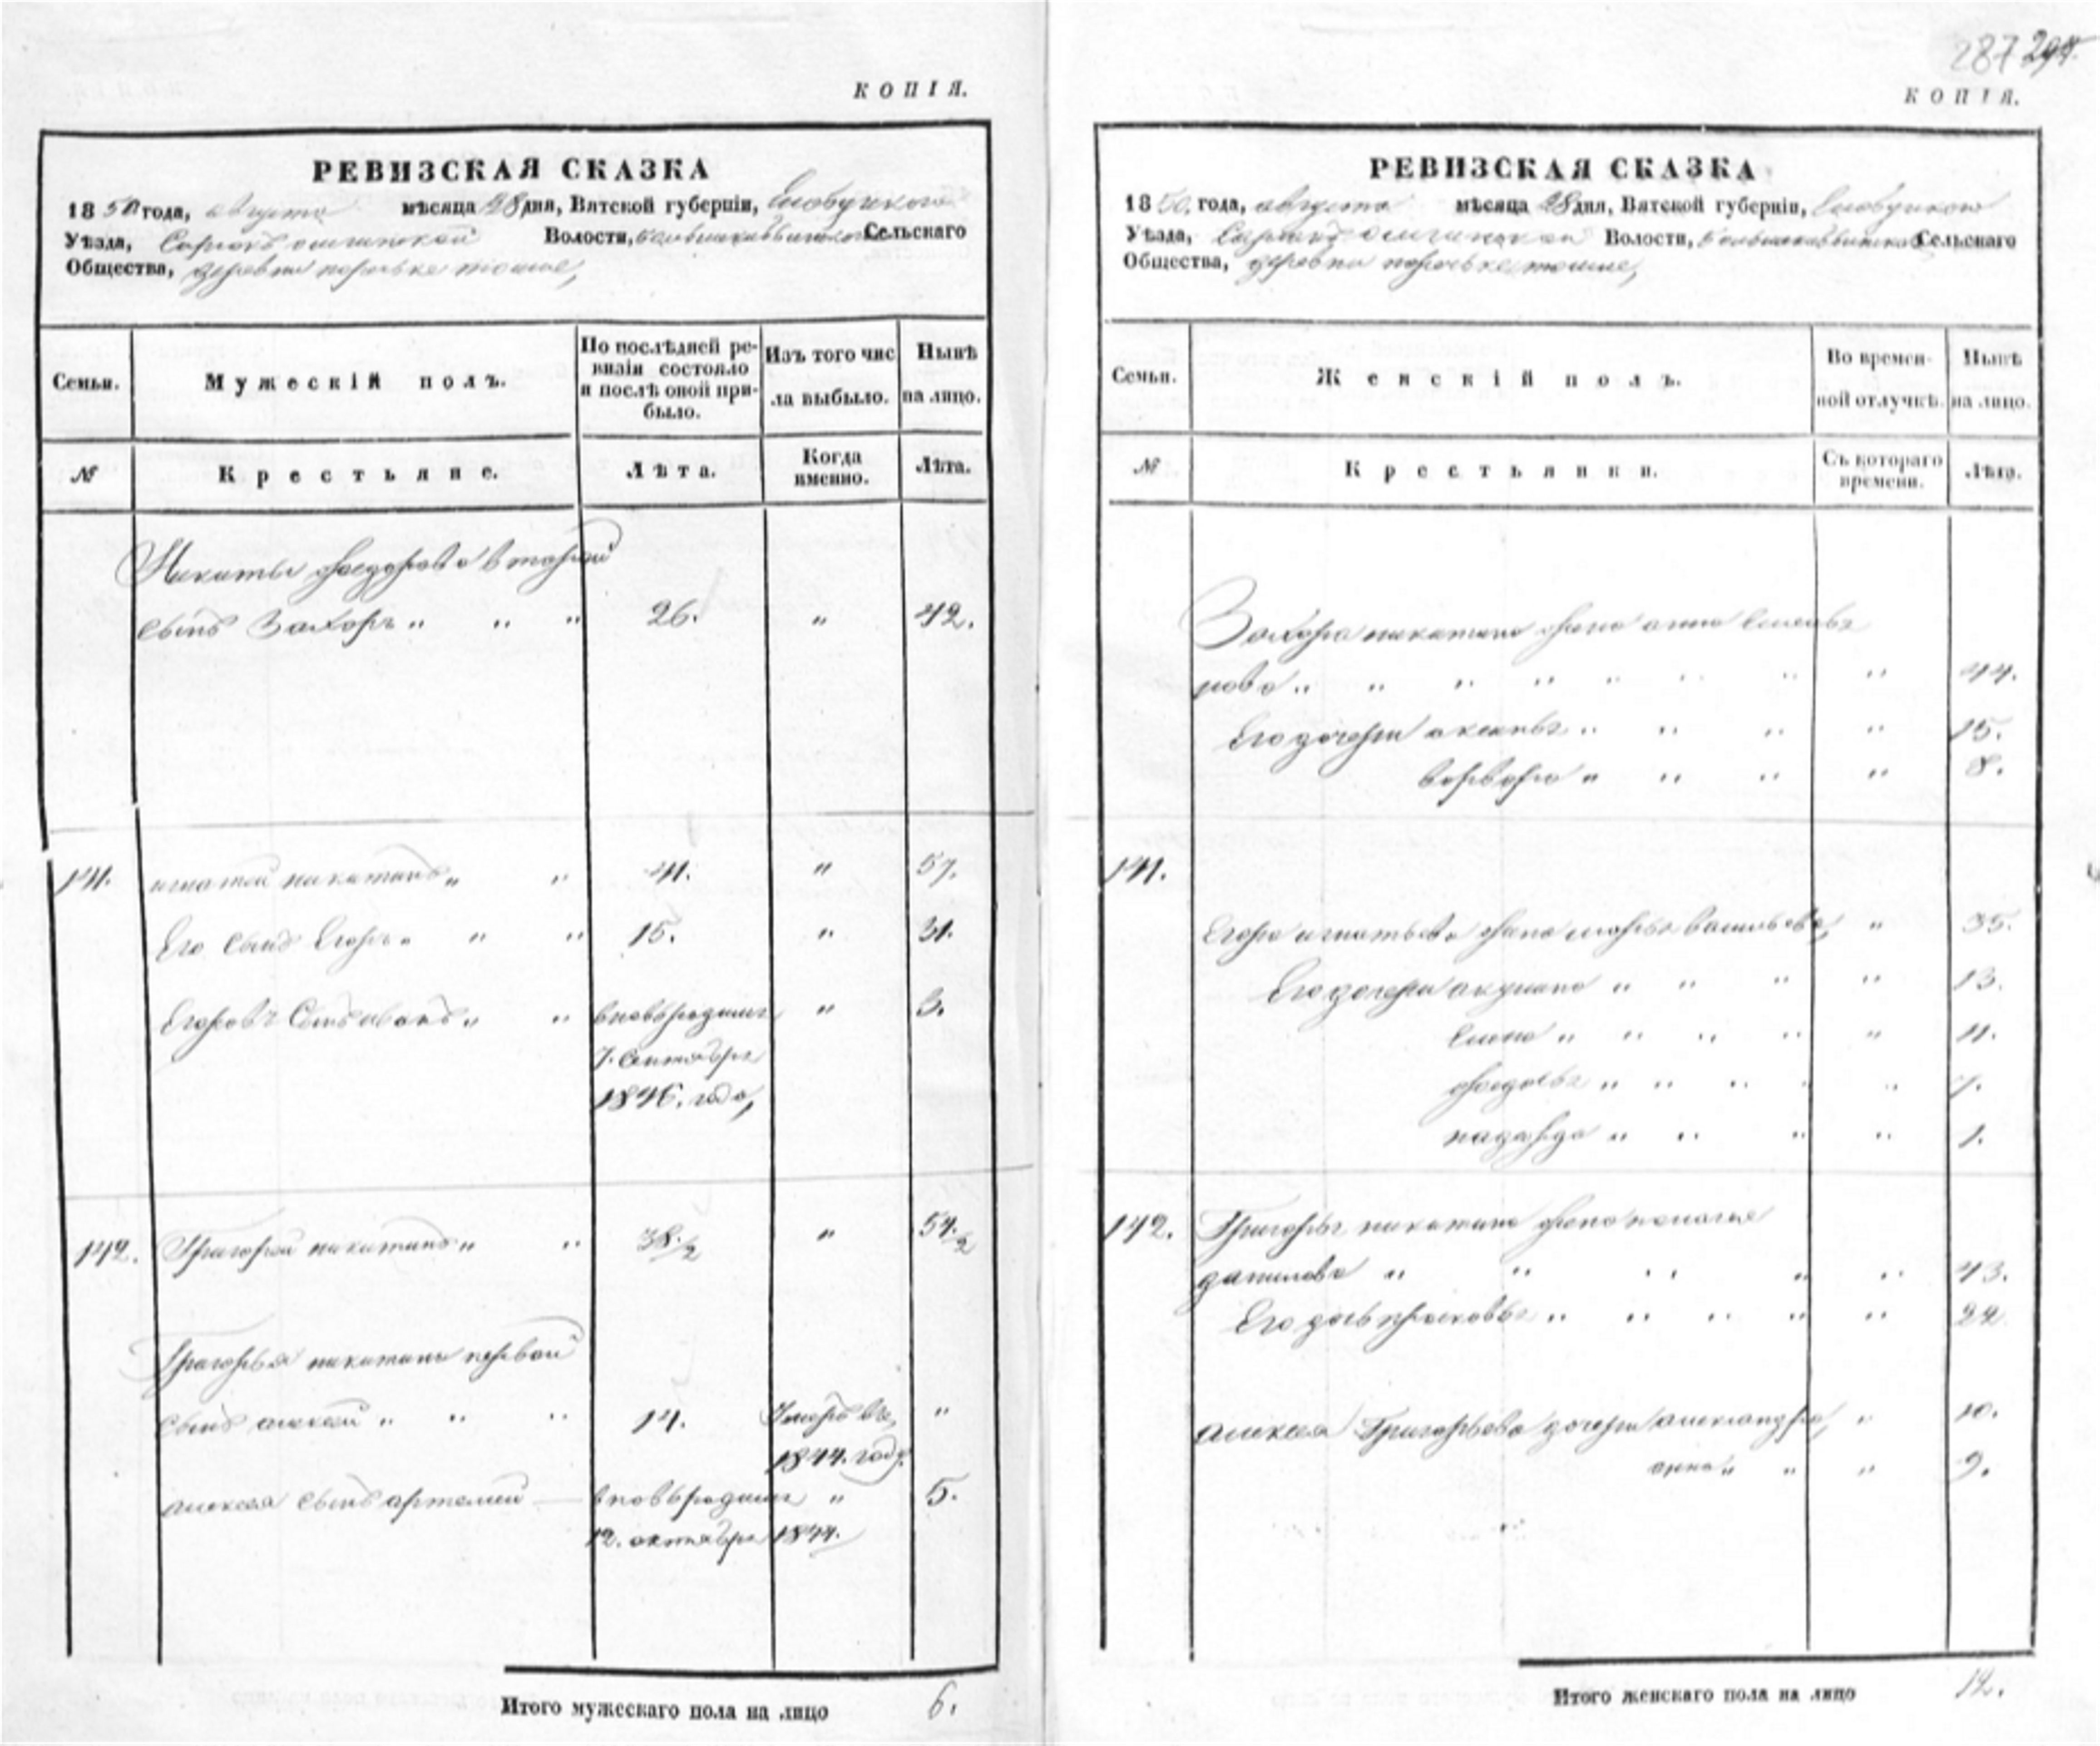 КОПІЯ.
РЕВИЗСКАЯ СКАЗКА
1850 года, августа мѣсяца 28 дня, Вятской губерніи, Елабужскаго
Уѣзда, Волости, Сельскаго
Общества, деревни
Семьи.
Мужескій полъ.
По послѣдней ре-
визіи состояло
и послѣ оной при-
было.
Изъ того чис
ла выбыло.
Нынѣ
на лицо.
№
Крестьяне.
Лѣта.
Когда
именно.
Лѣта.
Никиты Федорова второй
сынъ Захоръ " " " 26. " 42.
141. игнатей никитинъ " " 41. " 57.
Его сынъ Егоръ " " " 15. " 31.
Егоровъ сынъ иванъ " " вновьродился " 3.
7. сентября
1846. года,
142. Григорей никитинъ " " 38./2 " 54./2
Григорья никитина первой
сынъ алексей " " " 14. Умеръ въ "
1844. году.
алексея сынъ артемей — вновьродился " 5.
12. октября 1844.
Итого мужескаго пола на лицо 6.
287 297.
КОПІЯ.
РЕВИЗСКАЯ СКАЗКА
1850. года, августа мѣсяца 28 дня, Вятской губерніи, Елабужскаго
Уѣзда, Волости, Сельскаго
Общества, деревни
Семьи.
Женскій полъ.
Во времен-
ной отлучкѣ.
Нынѣ
на лицо.
№
Крестьянки.
Съ котораго
времени.
Лѣта.
Захора никитина жена анна
" " " " " " " " 44.
Его дочери аксинья " " " " 15.
варвара " " " " 8.
141.
Егора игнатьева жена марья васильева, " 35.
Его дочери акулина " " " " 13.
Елена " " " " " 11.
федосья " " " " " 7.
надежда " " " " 1.
142. Григорья никитина жена пелагея
данилова " " " " " 43.
Его дочь прасковья " " " " " 22
алексея Григорьева дочери александра, " 10.
анна " " " 9.
Итого женскаго пола на лицо 12.